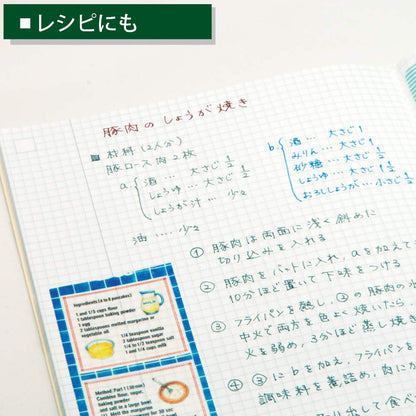 ■レシピにも
豚肉のしょうが焼き
■ 材料(2人分)
豚ロース肉2枚
a 酒… 大さじ1/2
しょうゆ… 大さじ1/2
しょうが汁… 少々
油 … 少々
b 酒… 大さじ1
みりん… 大さじ1
砂糖… 大さじ1/2
しょうゆ… 大さじ1/2
おろししょうが… 小さじ
① 豚肉は両面に浅く斜めに
切り込みを入れる
② 豚肉をバットに入れ、aを加えて
10分ほど置いて下味をつける
③ フライパンを熱し、②の豚肉の
中火で両方を色よく焼いたら
火を弱め、3分ほど蒸し焼き
④ ③にbを加え、フライパン
調味料を煮詰め、肉に
Ingredients (4 to 8 pancakes)
1 and 1/2 cups flour
1 tablespoon baking powder
1 egg
2 tablespoons melted margarine or
vegetable oil
1/4 teaspoon vanilla
2 tablespoons sugar
1/4 to 1/2 teaspoon salt
1 and 1/4 cups milk
Method: Part 1 (30 min)
Combine flour, sugar,
baking powder
and salt in a large bowl